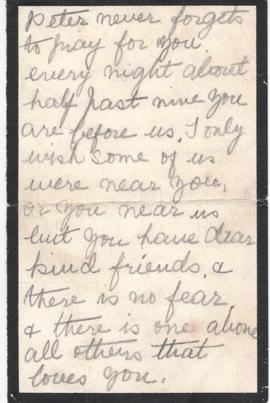 Peter never forgets
to pray for you.
every night about
half past nine you
are before us. I only
wish some of us
were near you,
or you near us
but you have dear
kind friends, &
there is no fear,
& there is one above
all others that
loves you.